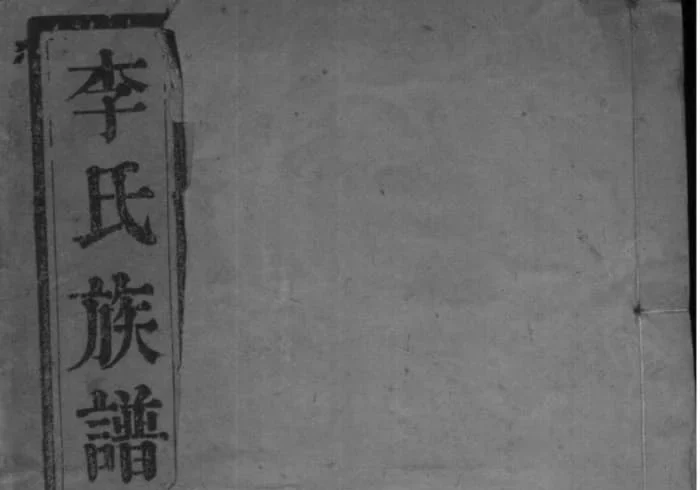 李氏族譜